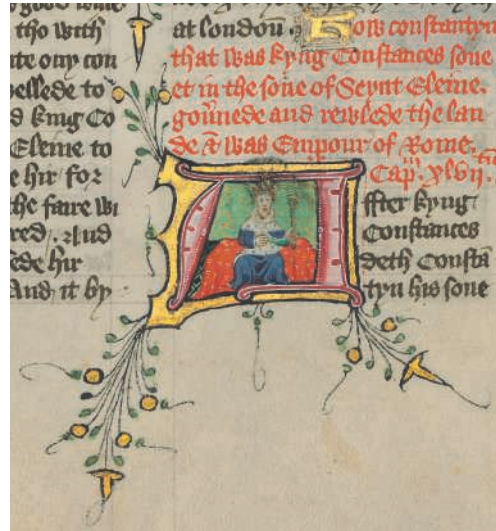 good
tho with
te ony con
ellede to
d kyng Co
Eleine to
e hir for
the faire wi
red. And
ede hir
And it by
at london. How constantyn
that was kyng Constances sone
et in the sone of Seynt Eleine.
gounede and rewlede the lan
de & was Empour of Rome.
Cap. xlvij.
ffter kyng
Constances
deth Consta
tyn his sone